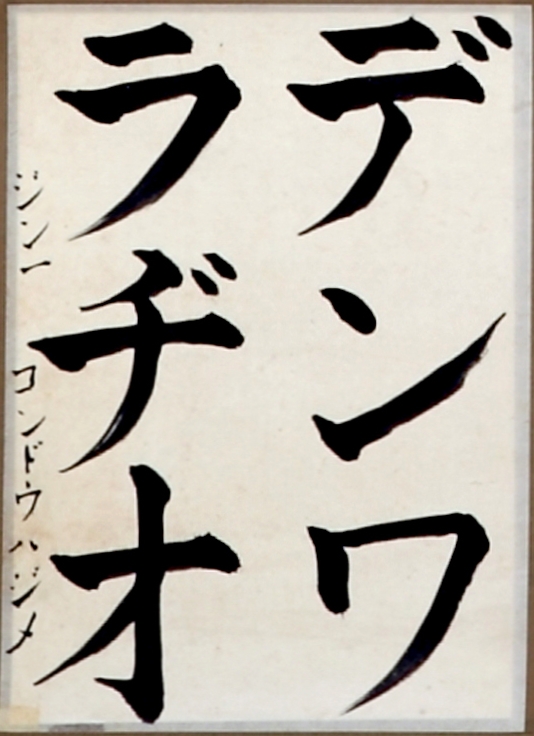 デンワ
ラヂオ
ジン一 コンドウハジメ